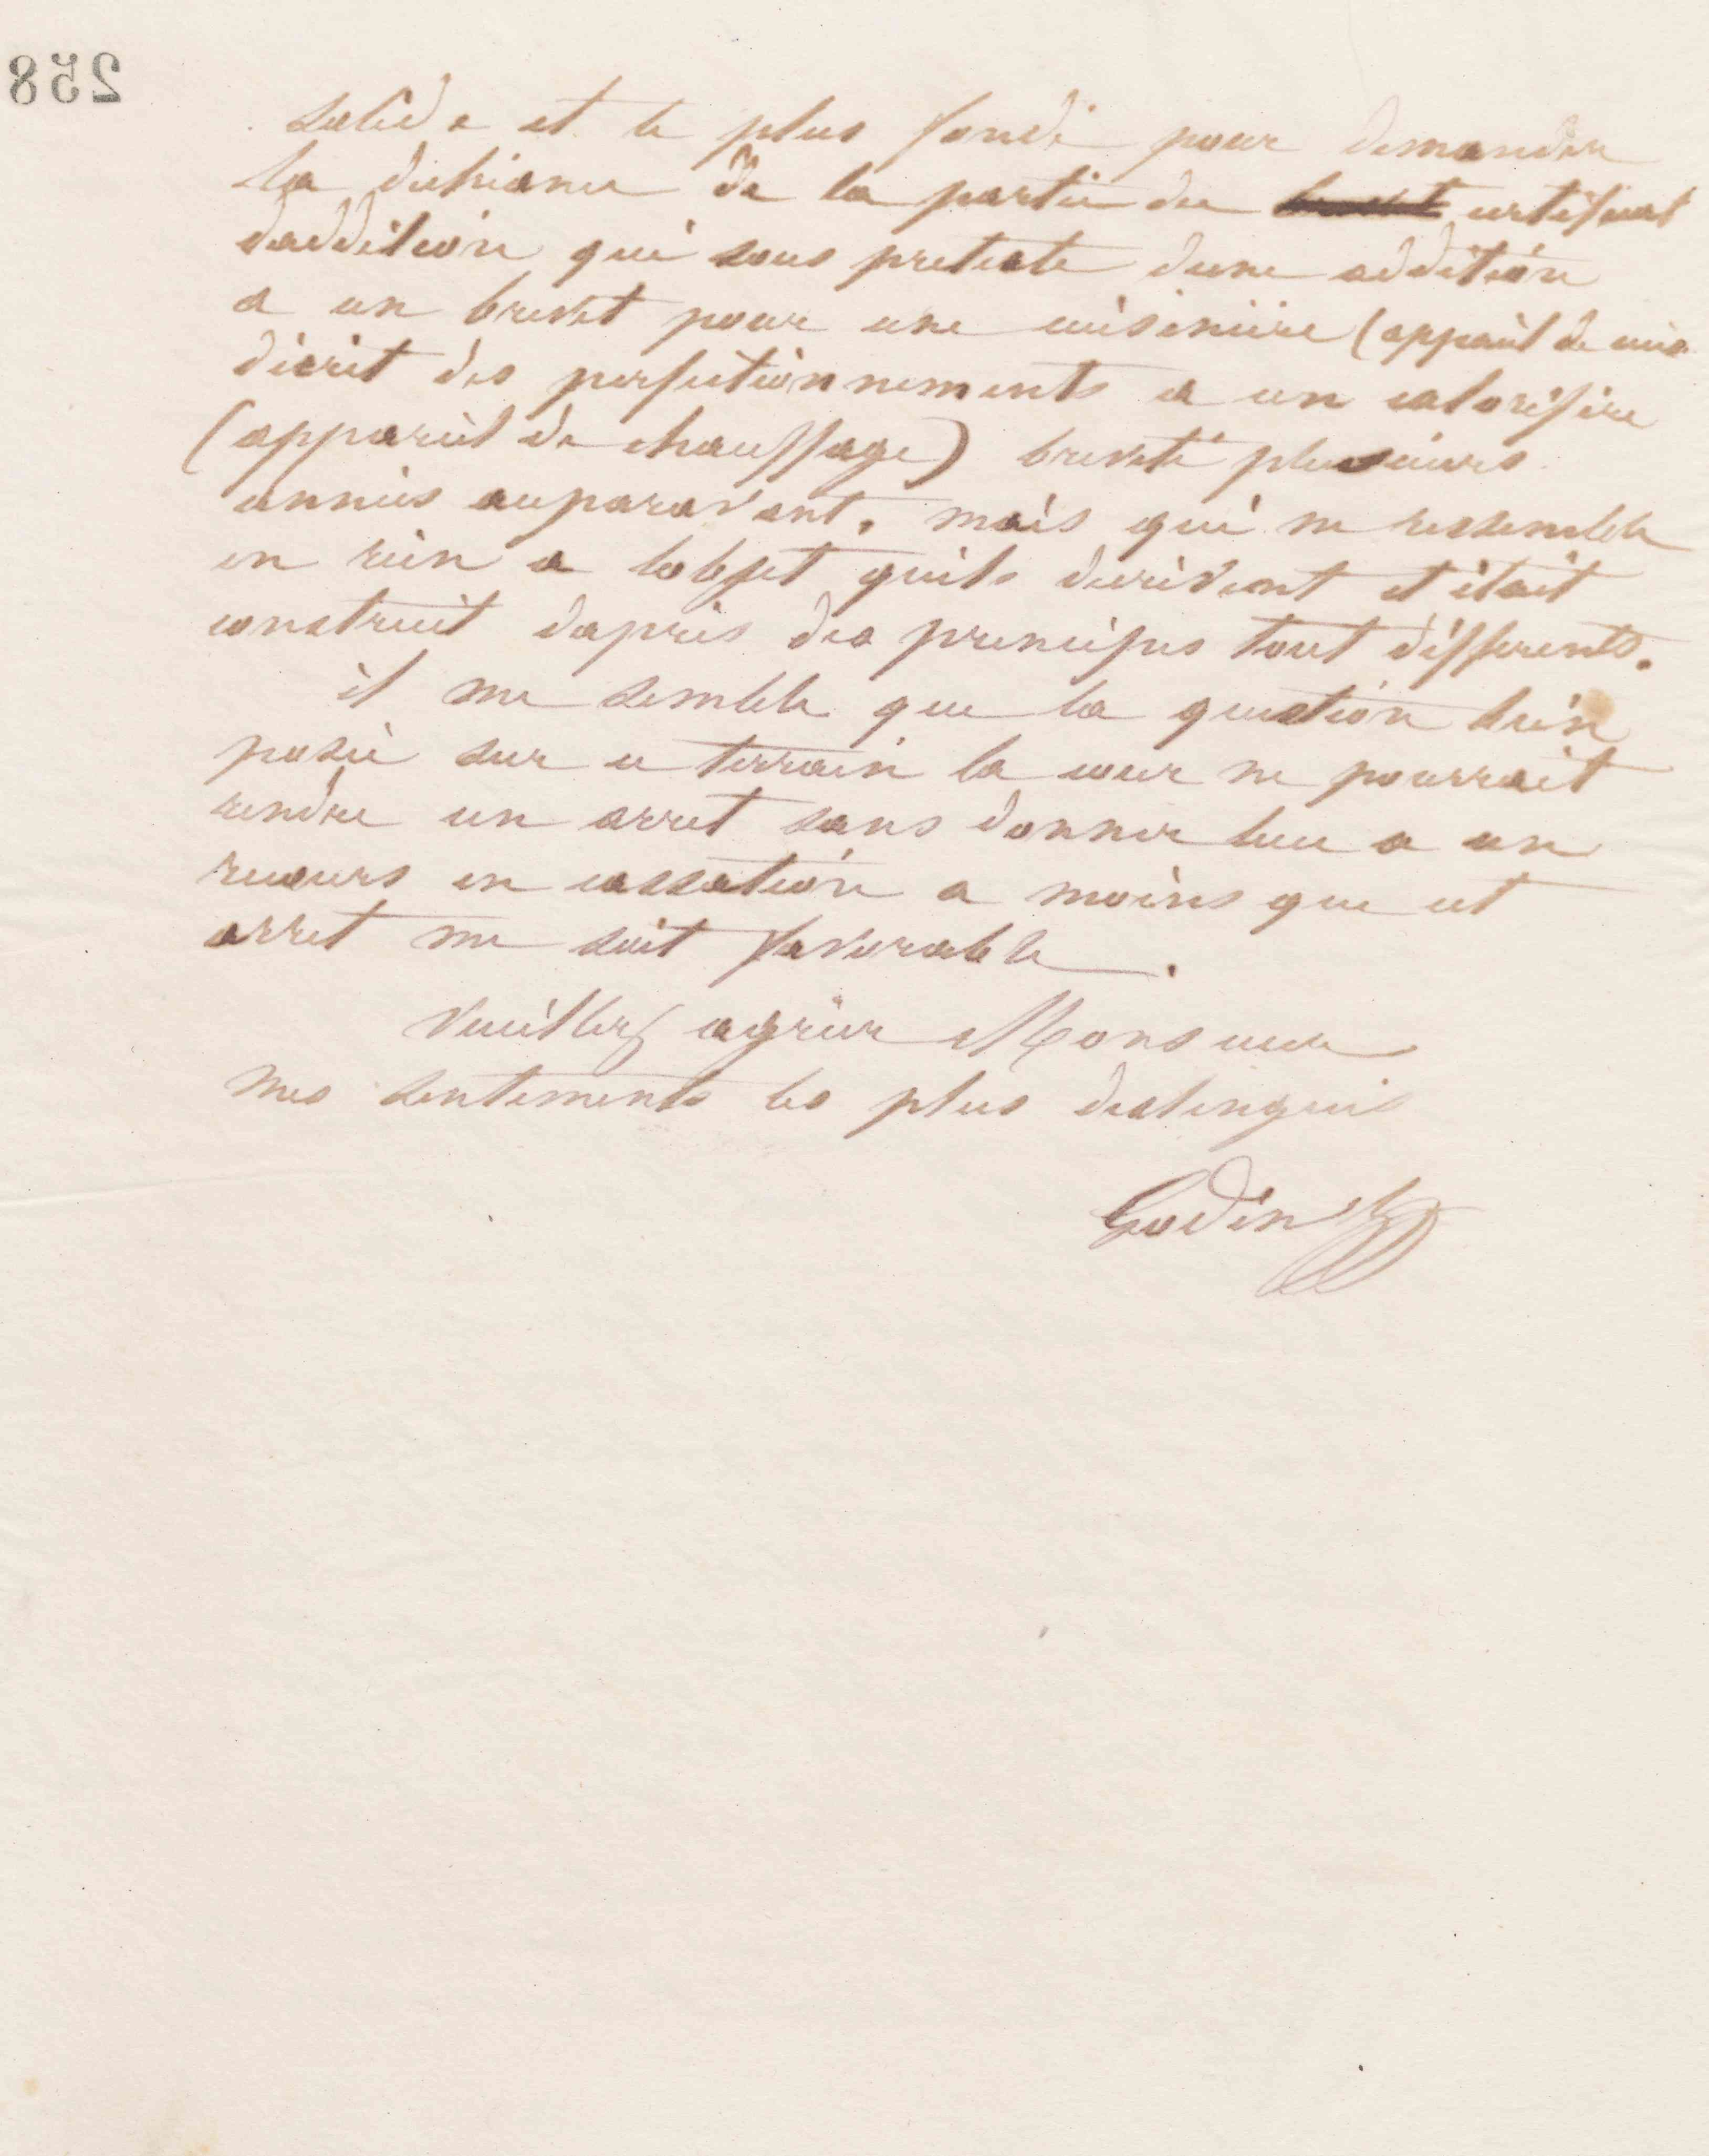 258
solide et le plus fondé pour demander
la dechéance de la partie du certificat
daddition qui sous pretexte dune addition
a un brevet pour une cuisinière (appareil de cuis
décrit des perfectionnements a un calorifère
(appareil de chauffage) breveté plusieurs
années auparavant. mais qui ne ressemble
en rien a lobjet quils decrivent et était
construit daprès des principes tout différents.
il me semble que la question bien
posée sur ce terrain la cour ne pourrait
rendre un arret sans donner lieu a un
recours en cassation a moins que cet
arret me soit favorable.
Veuillez agréer Monsieur
mes sentiments les plus distingués
Godin